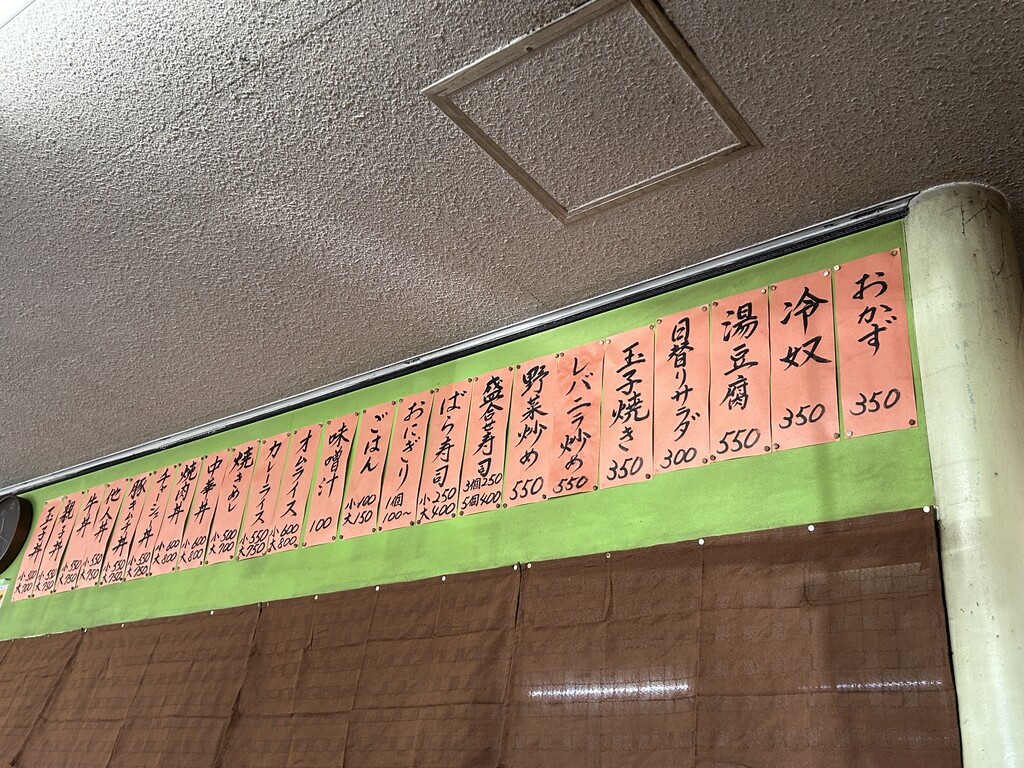 おかず 350
冷奴 350
湯豆腐 550
日替りサラダ 300
玉子焼き 350
レバニラ炒め 550
野菜炒め 550
盛合せ寿司 3個250 5個400
ばら寿司 小250 大400
おにぎり 1個100〜
ごはん 小100 大150
味噌汁 100
オムライス 小600 大800
カレーライス 小550 大750
焼きめし 小500 大700
中華丼 小600 大800
焼肉丼 小600 大800
チャーシュー丼 小600 大800
豚キムチ丼 小550 大750
他人丼 小550 大750
牛丼 小550 大750
親子丼 小550 大750
玉子丼 小500 大700